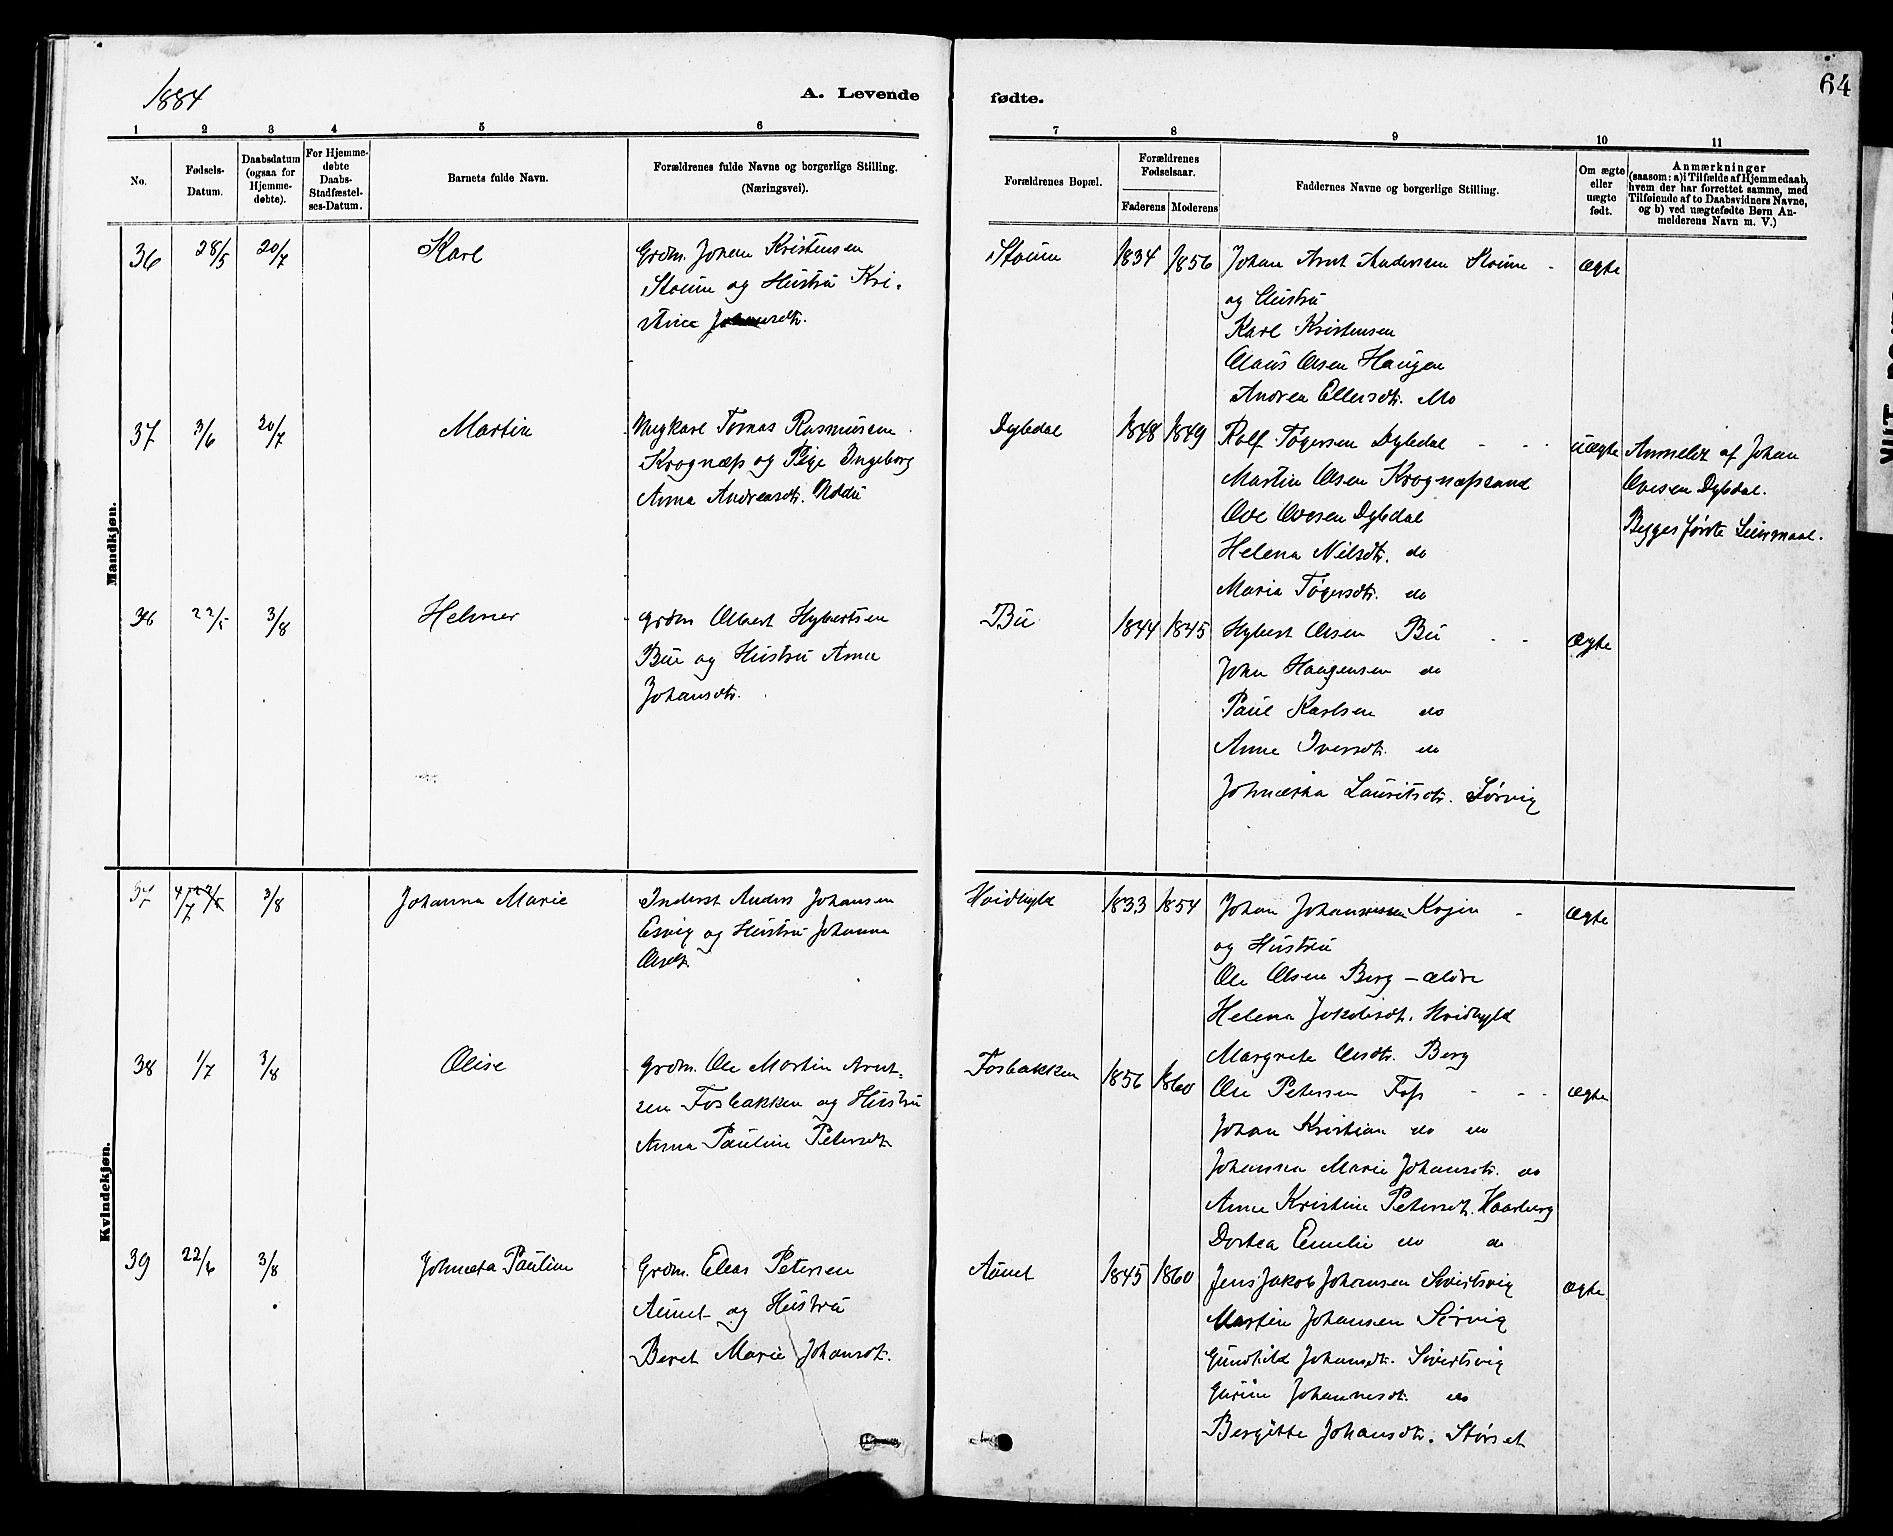 1884
A. Levende fødte.
64
1 2 3 4 5 6 7 8 9 10 11
No.
Fødsels-
Datum.
Daabsdatum
(ogsaa for
Hjemme-
døbte).
For Hjemme-
døbte
Daabs-
Stadfæstel-
ses-Datum.
Barnets fulde Navn.
Forældrenes fulde Navne og borgerlige Stilling.
(Næringsvei).
Forældrenes Bopæl.
Forældrenes
Fødselsaar.
Faderens Moderens
Faddernes Navne og borgerlige Stilling.
Om ægte
eller
uægte
født.
Anmærkninger
(saasom: a) i Tilfælde af Hjemmedaab,
hvem der har forrettet samme, med
Tilføiende af to Daabsvidners Navne,
og b) ved uægtefødte Børn An-
melderens Navn m. V.)
Mandkjøn.
36 28/5 20/7 Karl
Grdm. Johan Kristensen
Steine og Hustru Kri-
stine
1834 1856
Johan Arnt Andersen
og Hustru
Karl Kristensen
Claus Olsen Haugen
Andrea Ellersdtr. Mo
ægte
37 3/6 20/7 Martin
Ungkarl Tomas Rasmussen
Krognæss og Pige Ingeborg
Anna Andreasdtr.
Dybdal
1848 1849
Rolf Tøgersen Dybdal
Martin Olsen Krognæssand
Ove Ovesen Dybdal
Helena Nilsdtr. do
Maria Tøgersdtr. do
uægte
Anmeldt af Johan
Ovesen Dybdal.
Begges første Leiermaal.
36 22/5 3/8 Helmer
Grdm Albert Hybertsen
Bue og Hustru Anna
Johansdtr.
Bu
1844 1845
Hybert Olsen Bu
John Haagensen do
Paul Karlsen do
Anne Iversdtr. do
Johnætha Lauritsdtr. Sørvig
ægte
Kvindekjøn.
37 4/7 3/8 Johanna Marie
Inderst Anders Johansen
Esvig og Hustru Johanna
Olsdtr.
Hvidhyld
1833 1854
Johan Johannesen
og Hustru
Ole Olsen Berg – ældre
Helena Jakobsdtr. Hvidhyld
Margrete Olsdtr. Berg
ægte
38 1/7 3/8 Oline
Grdm. Ole Martin Arnt-
sen Fosbakken og Hustru
Anna Pauline Petersdtr.
Fosbakken
1856 1860
Ole Petersen Foss
Johan Kristian do do
Johanna Marie Johansdtr. do
Anne Kristine Petersdtr. Haarberg
Dortea Emelie do do
ægte
39 22/6 3/8 Johnæta Pauline
Grdm. Elias Petersen
Aunet og Hustru
Beret Marie Johansdtr.
Aunet
1845 1860
Jens Jakob Johansen Sivertsvig
Martin Johansen Sørvig
Gunhild Johansdtr. Sivertsvig
Gurine Johannesdtr. do
Bergitte Johansdtr. Størset
ægte